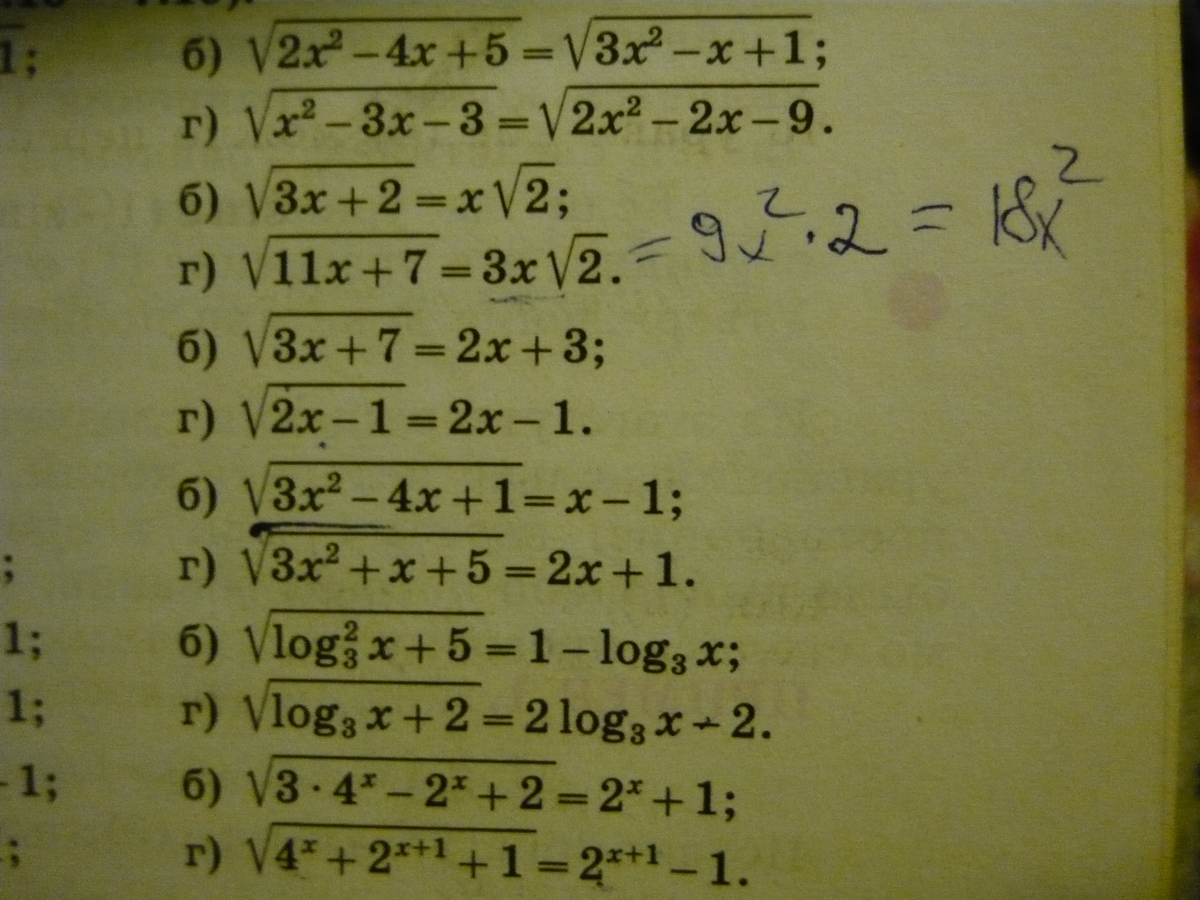 1; б) √(2x² − 4x + 5) = √(3x² − x + 1);
г) √(x² − 3x − 3) = √(2x² − 2x − 9).
б) √(3x + 2) = x√2;
г) √(11x + 7) = 3x√2. = 9x² · 2 = 18x²
б) √(3x + 7) = 2x + 3;
г) √(2x − 1) = 2x − 1.
б) √(3x² − 4x + 1) = x − 1;
; г) √(3x² + x + 5) = 2x + 1.
1; б) √(log₃² x + 5) = 1 − log₃ x;
1; г) √(log₃ x + 2) = 2 log₃ x − 2.
- 1; б) √(3 · 4ˣ − 2ˣ + 2) = 2ˣ + 1;
; г) √(4ˣ + 2ˣ⁺¹ + 1) = 2ˣ⁺¹ − 1.